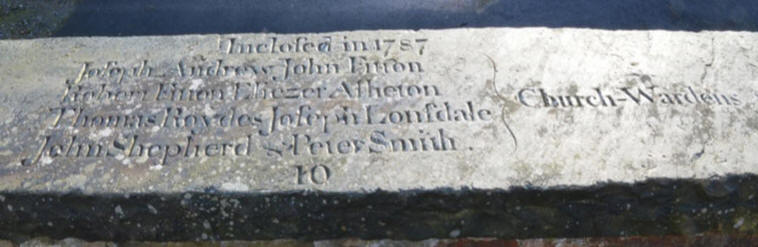 Inclosed in 1787
Joseph Andrew John Fitton
Robert Fitton Eliezer Asheton
Thomas Roydes Joseph Lonsdale
John Shepherd & Peter Smith
Church-Wardens
10